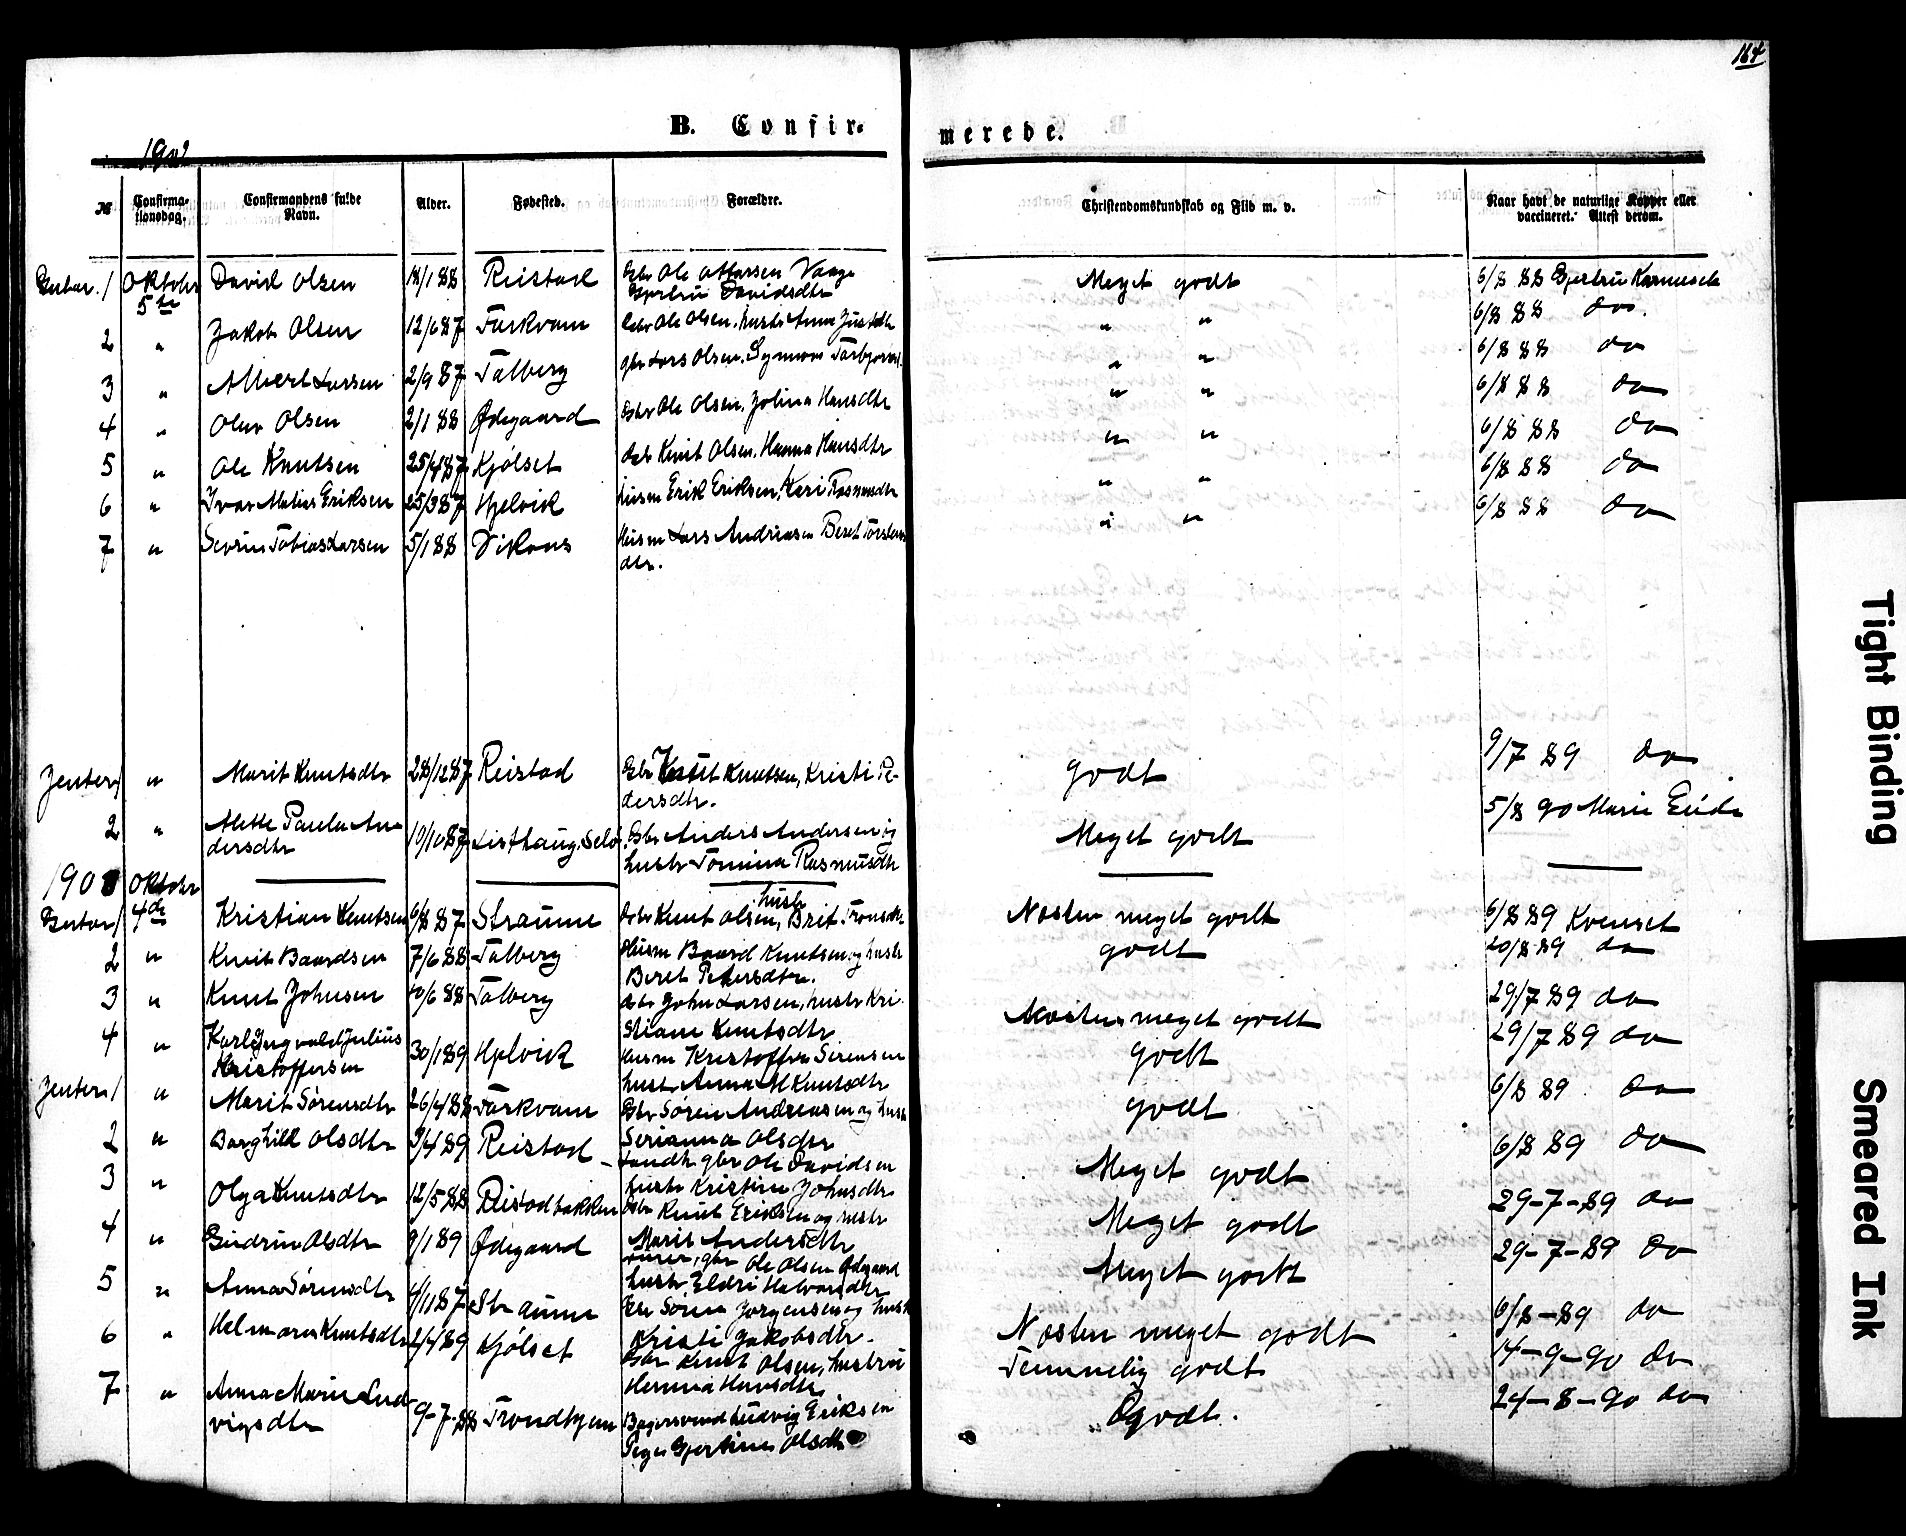 164
B. Confir-
merede.
1902
№
Confirma-
tionsdag.
Confirmandens fulde
Navn.
Alder.
Fødested.
Forældre.
Christendomskundskab og Flid m. v.
Naar havt de naturlige Kopper eller
vaccineret. Attest derom.
1 Oktober 5te David Olsen 18/1 88 Reistad Gbr Ole Davidsdtr Meget godt 6/8 88
2 " Jakob Olsen 12/6 87 Farkvam Gbr Ole Olsen, hustr Anna " " 6/8 88 do.
3 " Albert Larsen 2/9 87 Talberg gbr Lars Olsen, " " 6/8 88 do
4 " Olav Olsen 2/1 88 Ødegaard Gbr Ole Olsen, Jolina Hansdtr " " 6/8 88 do
5 " Ole Knutsen 25/4 87 Kjølset Gbr Knut Olsen, Hanna Hansdtr " " 6/8 88 do
6 " Ivar Matias Eriksen 25/3 87 Hjelvik Husm Erik Eriksen, Keri Rasmusdtr " " 6/8 88 do
7 " Severin Tobias Larsen 5/1 88 Vikans Husm Lars Andreasen Beret
dtr. " " 6/8 88 do
Jenter 1 " Marit Knutsdtr 28/12 87 Reistad Gbr Knut Knutsen, Kristi Pe-
dersdtr. godt 9/7 89 do
2 " Alette Paula An
dersdtr 10/10 87 Listhaug, Gbr Anders Andersen og
hustr Tomina Rasmusdtr Meget godt 5/8 90 Marie Eide
190 Oktober
Gutar 1 4de Kristian Knutsen 6/8 87 Straume Gbr Knut Olsen, hustr Brit Næsten meget godt 6/8 89 Kvenset
2 " Knut Baardsen 7/6 88 Talberg Husm Baard Knutsen og hustr
Beret Petersdtr. godt 20/8 89 do
3 " Knut Johnsen 10/6 88 Talberg Gbr John Larsen, hustr Kri
stiane Knutsdtr Næsten meget godt 29/7 89 do
4 " Karl Ingvald Julius
Kristoffersen 30/1 89 Hjelvik Husm Kristoffer Sørensen
hustr Anna M Knutsdtr godt 29/7 89 do
Jenter 1 " Marit Sørensdtr 26/4 88 Farkvam Gbr Søren Andreasen og hustr
Serianna Olsdtr godt 6/8 89 do
2 " Borghild Olsdtr 3/4 89 Reistad gbr Ole Davidsen
hustr Kristine Johnsdtr Meget godt 6/8 89 do
3 " Olga Knutsdtr 12/5 88 Reistadbakken Gbr Knut Eriksen og hustr
Marit Andersdtr Meget godt 29-7-89 do
4 " Gudrun Olsdtr 9/1 89 Ødegaard gbr Ole Olsen Ødegaard
hustr Eldri Halvorsdtr Meget godt 29-7-89 do
5 " Anna Sørensdtr 4/11 87 Straume Gbr Søren Jørgensen og hustr
Kristi Jakobsdtr. Næsten meget godt 6/8-89 do
6 " Knutsdtr 2/4 89 Kjølset Gbr Knut Olsen, hustru
Hanna Hansdtr Temmelig godt 14-9-90 do
7 " Anna Marie Lud-
vigsdtr 9-7-88 Trondhjem Ludvig Eriksen
Pige Gjertine Olsdtr godt. 24-8-90 do
Tight Binding
Smeared Ink